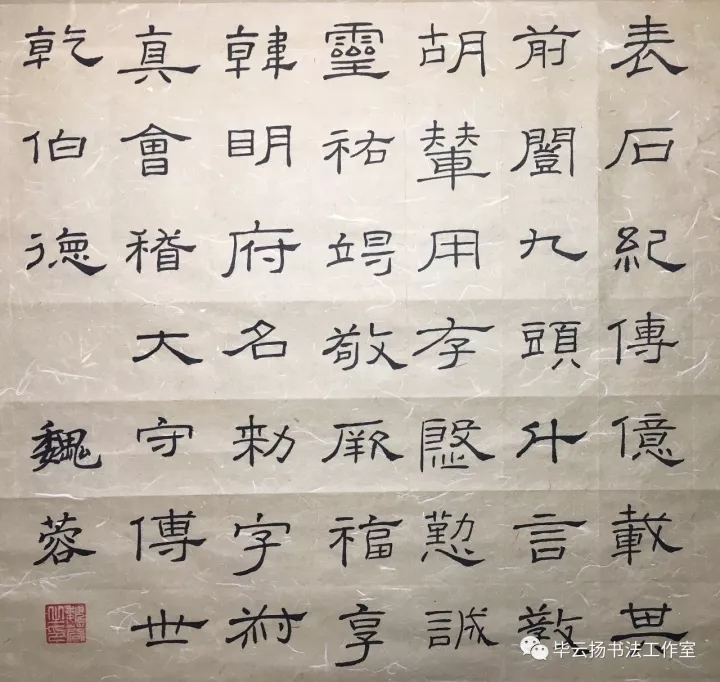 表石紀傳億載其
前闓九頭斗言教
胡輦用存慇懃誠
靈祐竭敬厥福享
韓明府名勑字叔
真會稽大守傅世
乾伯德
魏蓉
毕云扬书法工作室